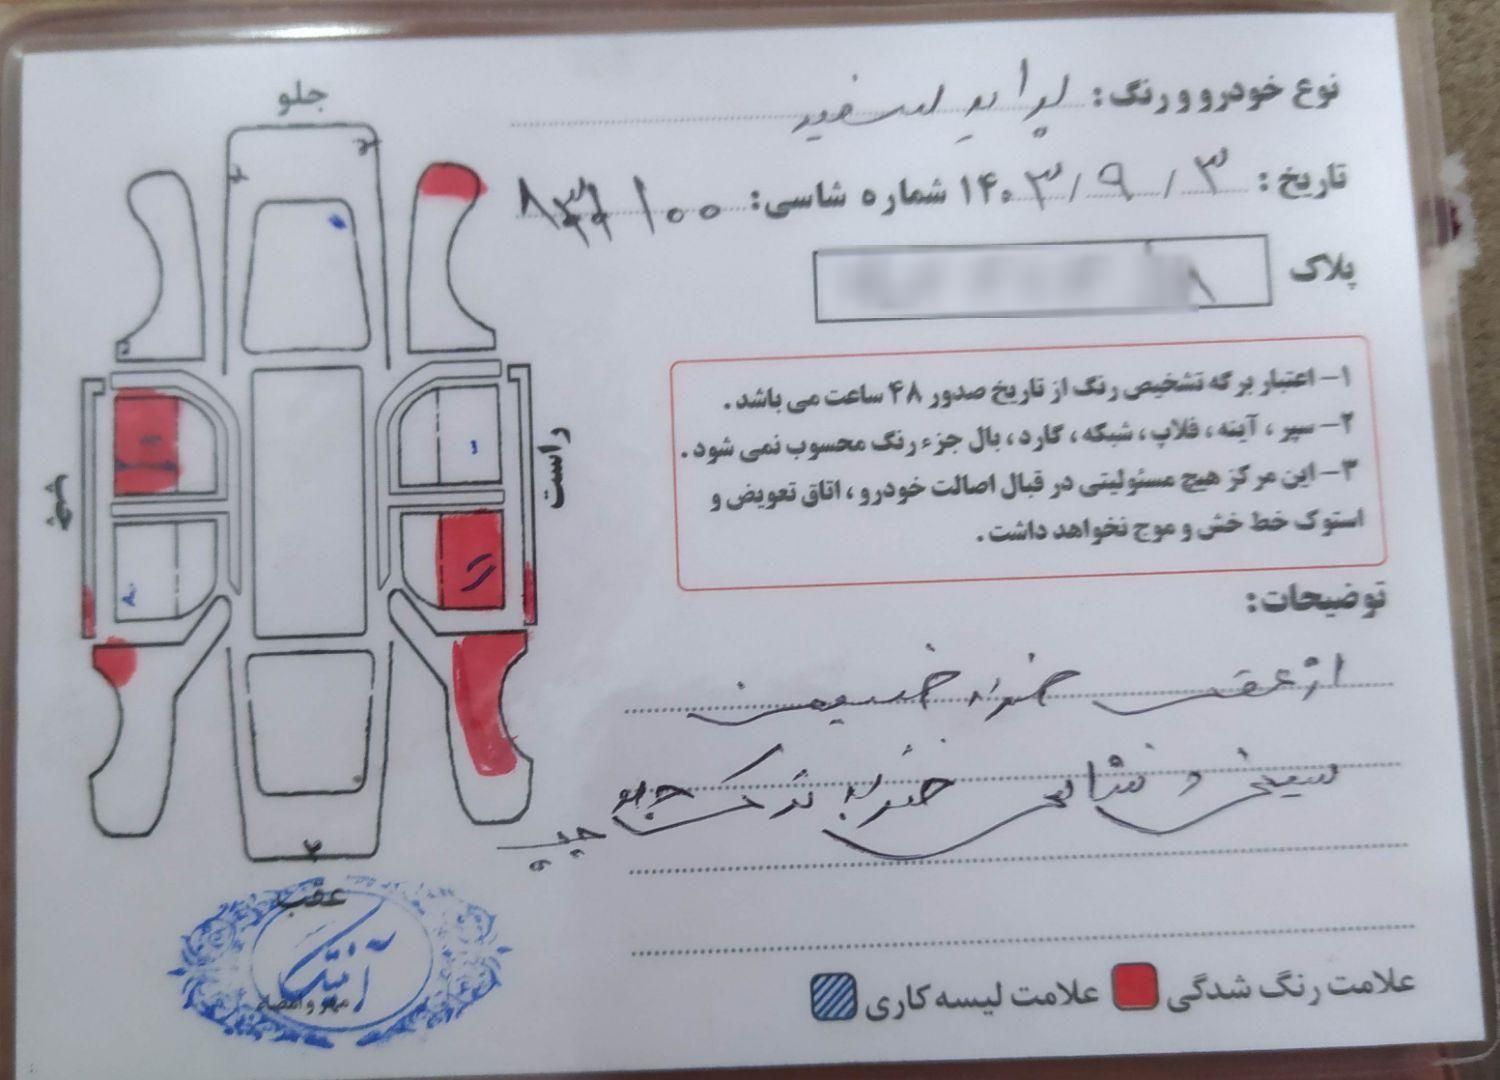 نوع خودرو و رنگ: پراید سفید
تاریخ: ۳ / ۹ / ۱۴۰۳ شماره شاسی:
پلاک
۱- اعتبار برگه تشخیص رنگ از تاریخ صدور ۴۸ ساعت می باشد.
۲- سپر، آینه، فلاپ، شبکه، گارد، بال جزء رنگ محسوب نمی شود.
۳- این مرکز هیچ مسئولیتی در قبال اصالت خودرو، اتاق تعویض و
استوک خط خش و موج نخواهد داشت.
توضیحات:
از عقب ضربه خسیمت
سینی و شاسی ضربه ترک جلو
چپ
علامت رنگ شدگی
علامت لیسه کاری
جلو
راست
چپ
عقب
آنتیک
مهر و امضاء